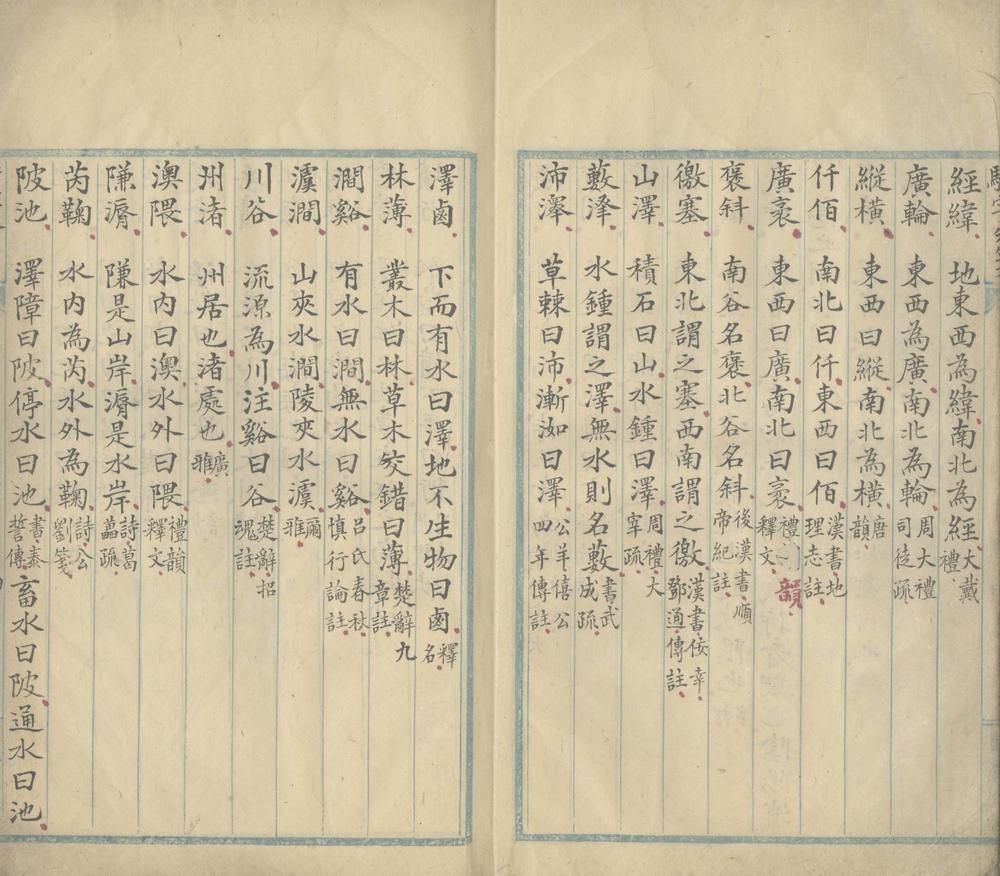 經緯 地東西為緯南北為經大戴禮
廣輪 東西為廣南北為輪周大禮司徒疏
縱橫 東西曰縱南北為橫唐韻
仟佰 南北曰仟東西曰佰漢書地理志註
廣袤 東西曰廣南北曰袤禮韻釋文
褒斜 南谷名褒北谷名斜後漢書順帝紀註
徼塞 東北謂之塞西南謂之徼漢書佞幸鄧通傳註
山澤 積石曰山水鍾曰澤周禮大宰疏
藪澤 水鍾謂之澤無水則名藪書武成疏
沛澤 草棘曰沛漸洳曰澤公羊僖公四年傳註
澤鹵 下而有水曰澤地不生物曰鹵釋名
林薄 叢木曰林草木交錯曰薄楚辭九章註
澗谿 有水曰澗無水曰谿呂氏春秋慎行論註
澞澗 山夾水澗陵夾水澞爾雅
川谷 流源為川注谿曰谷楚辭招魂註
州渚 州居也渚處也廣雅
澳隈 水內曰澳水外曰隈禮韻釋文
隒漘 隒是山岸漘是水岸詩葛藟疏
芮鞠 水內為芮水外為鞠詩公劉箋
陂池 澤障曰陂停水曰池書泰誓傳畜水曰陂通水曰池